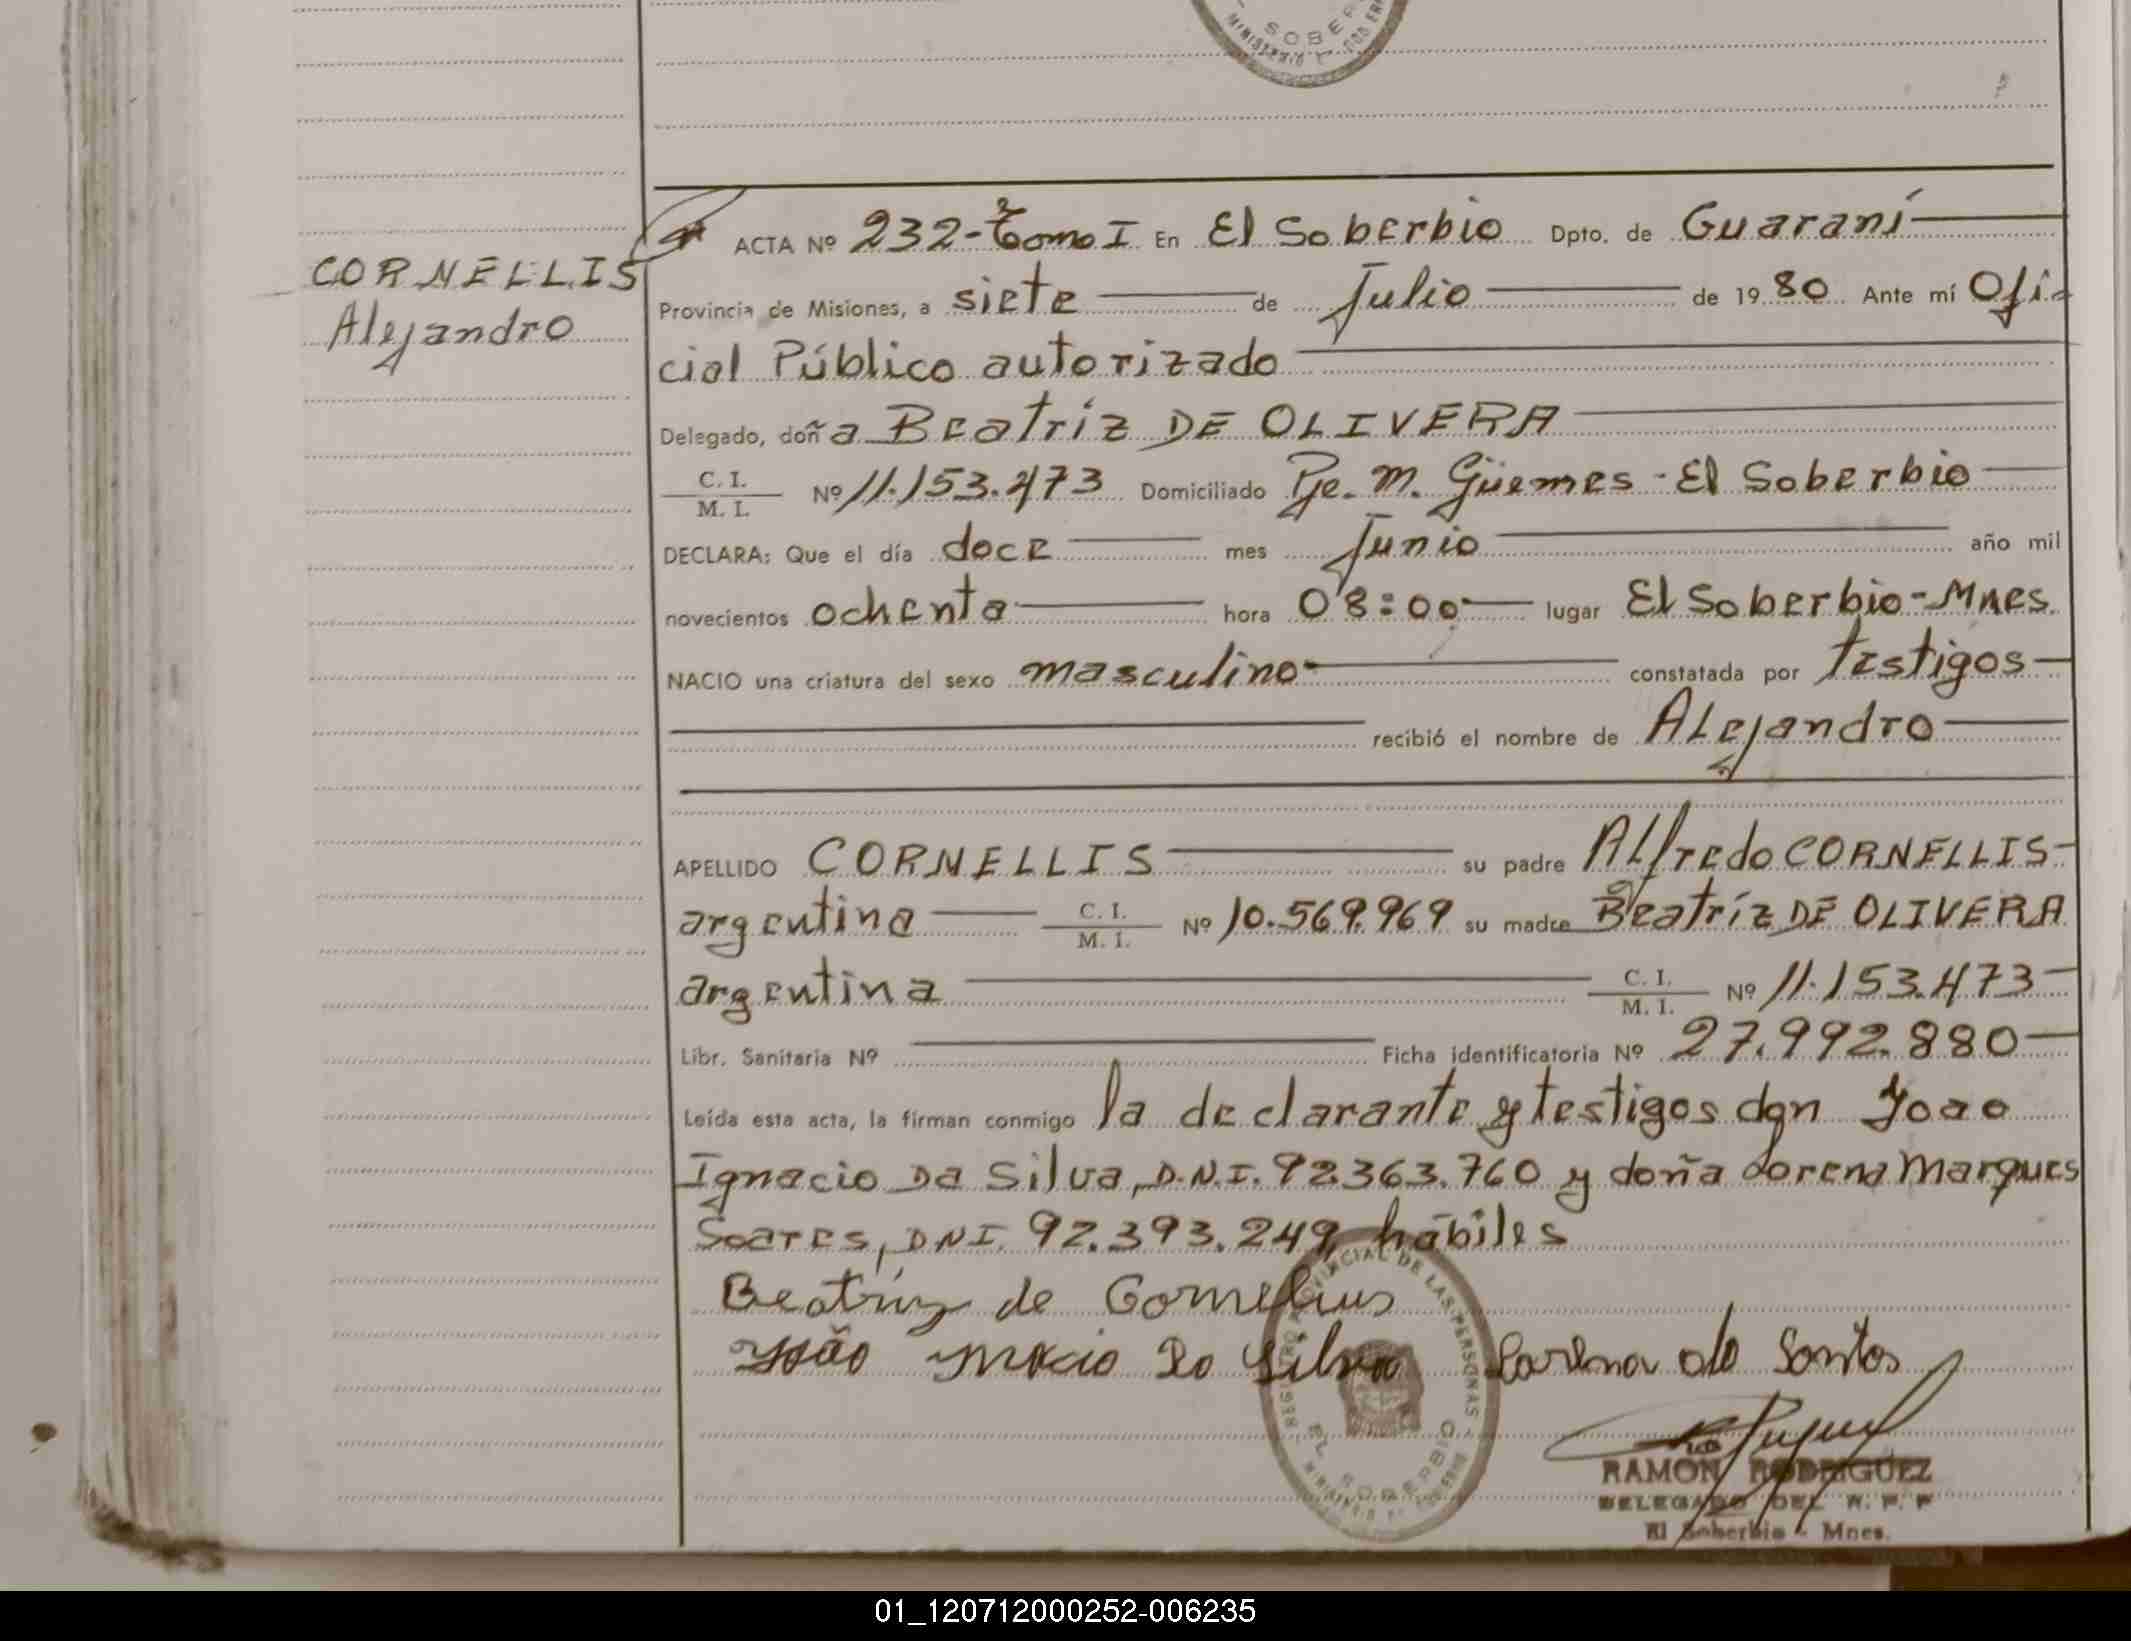 SOBER
MINISTERIO
ACTA Nº 232-Tomo I En El Soberbio Dpto. de Guaraní
CORNELLIS
Alejandro
Provincia de Misiones, a siete de Julio de 1980 Ante mí Ofi-
cial Público autorizado
Delegado, doña Beatríz DE OLIVERA
C. I.
M. I. Nº 11.153.473 Domiciliado Pje. M. Güemes - El Soberbio
DECLARA: Que el día doce mes Junio año mil
novecientos ochenta hora 08:00 lugar El Soberbio-Mnes.
NACIO una criatura del sexo masculino constatada por testigos
recibió el nombre de Alejandro
APELLIDO CORNELLIS su padre Alfredo CORNELLIS
argentina C. I. M. I. Nº 10.569.969 su madre Beatríz DE OLIVERA
argentina C. I. M. I. Nº 11.153.473
Libr. Sanitaria Nº Ficha identificatoria Nº 27.992.880
Leída esta acta, la firman conmigo la declarante y testigos don Joao
Ignacio Da Silva, D.N.I. 92.363.760 y doña Lorena Marques
Soares, DNI. 92.393.249, hábiles
Beatriz de Cornelius
João Da Silva Lorena do Santos
REGISTRO PROVINCIAL DE LAS PERSONAS
EL SOBERBIO
RAMON RODRIGUEZ
DELEGADO DEL R. P. P
El Soberbio - Mnes.
01_120712000252-006235